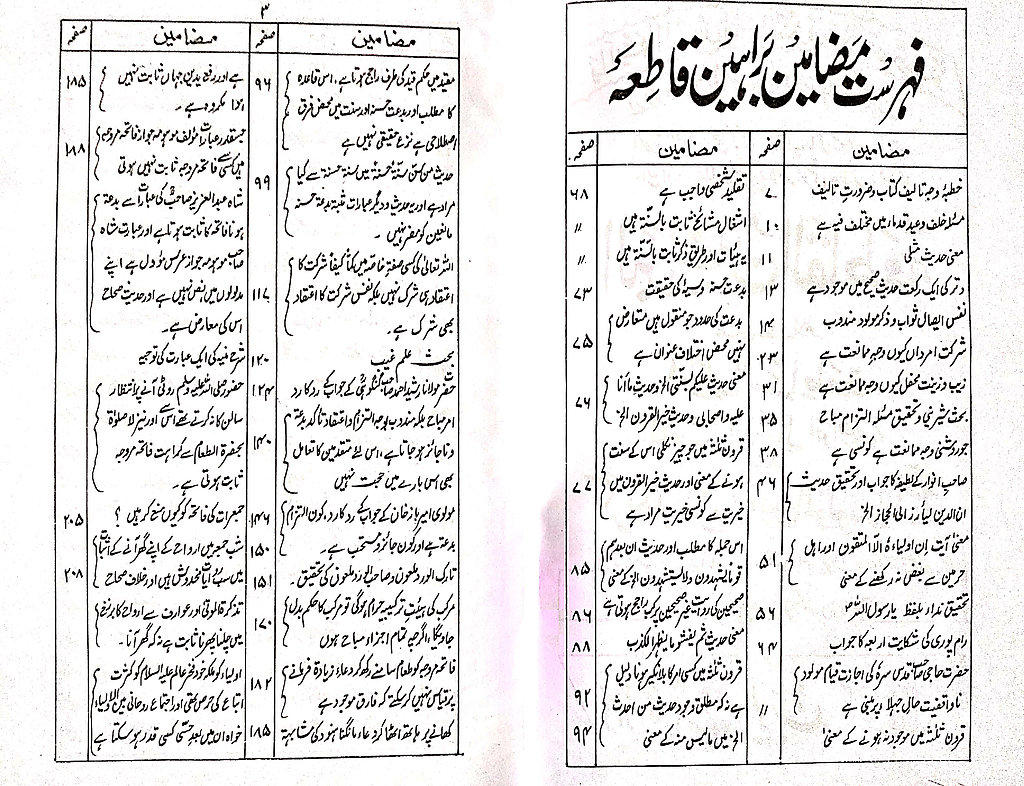 فہرست مضامین براہین قاطعہ
مضامین
صفحہ
خطبۂ وجہ تالیف کتاب و ضرورتِ تالیف
۷
مسئلہ خلف وعید قدماء میں مختلف فیہ ہے
۱۰
معنی حدیث مثلی
۱۱
وتر کی ایک رکعت حدیث صحیح میں موجود ہے
۱۳
نفس ایصال ثواب و ذکر مولود مندوب
۱۴
شرکت امرداں کیوں وجہِ ممانعت ہے
۲۳
زیب و زینت محفل کیوں وجہ ممانعت ہے
۳۱
بحث شیرینی و تحقیق مسئلہ التزام مباح
۳۵
جو روشنی وجہ ممانعت ہے کونسی ہے
۳۸
صاحب انوار کے لطیفہ کا جواب اور تحقیق حدیث
۴۶
ان الدین لیأرز الی الحجاز الخ
معنیٰ آیت ان اولیاءہٗ الا المتقون اور اہل
۵۱
حرمین سے بغض نہ رکھنے کے معنی
تحقیق نداء بلفظ یا رسول اللہ
۵۶
رام پوری کی شکایت اربعہ کا جواب
۶۴
حضرت حاجی صاحب قدس سرہٗ کی اجازت قیام مولود
ناواقفیت حالِ جہلا پر مبنی ہے
〃
قرون ثلٰثہ میں موجود نہ ہونے کے معنی
مضامین
صفحہ
تقلید شخصی واجب ہے
۶۸
اشغال مشائخ ثابت بالسنۃ ہیں
〃
یہ ہیئات اور طریق ذکر ثابت بالسنۃ ہیں
〃
بدعت حسنہ و سیئہ کی حقیقت
۷۳
بدعت کی حدود جو منقول ہیں متعارض
۷۵
نہیں محض اختلاف عنوان ہے
معنی حدیث علیکم بسنتی الخ وحدیث ما انا
۷۶
علیہ واصحابی وحدیث خیر القرون الخ
قرون ثلٰثہ میں جو چیز نکلی اس کے سنت
ہونے کے معنی اور حدیث خیر القرون میں
۷۷
خیریت سے کونسی خیریت مراد ہے
اس جملہ کا مطلب اور حدیث ان بعدہم
۸۵
قوماً یشہدون ولا یستشہدون الخ کے معنی
صحیحین کی روایت غیر صحیحین پر کب راجح ہوتی ہے
۸۶
معنی حدیث ثم یفشو ما یظہر الکذب
۸۸
قرون ثلٰثہ میں کسی امر کا بلانکیر ہونا دلیل
۹۲
ہے نہ کہ مطلق وجود حدیث من احدث
الخ میں ما لیس منہ کے معنی
۹۴
۳
مضامین
صفحہ
مقید میں حکم قید کی طرف راجع ہوتا ہے، اس قاعدہ
۹۶
کا مطلب اور بدعت حسنہ اور سنت میں محض فرق
اصطلاحی ہے نزاع حقیقی نہیں ہے
حدیث من سن سنۃ حسنۃ میں سنۃ حسنۃ سے کیا
۹۹
مراد ہے اور یہ حدیث و دیگر عبارات مثبتہ بدعۃ حسنہ
مانعین کو مضر نہیں ۔
اللہ تعالیٰ کی کسی صفت خاصہ میں کمّاً کیفاً شرکت کا
اعتقاد ہی شرک نہیں بلکہ نفس شرکت کا اعتقاد
۱۱۷
بھی شرک ہے ۔
بحث علم غیب
۱۲۰
حضرت مولانا رشید احمد صاحب گنگوہی کے جواب کے رد کا رد
۱۲۴
امر مباح بلکہ مندوب بوجہ التزام و اعتقاد تاکد بدعۃ
وناجائز ہو جاتا ہے، اس لئے متقدمین کا تعامل
۱۴۰
بھی اس بارے میں حجت نہیں
مولوی امیر باز خان کے جواب کے رد کا رد، کون التزام
۱۴۶
بدعۃ ہے اور کون جائز و مستحب ہے ۔
۱۵۰
تارک الورد ملعون و صاحب الورد ملعون کی تحقیق ۔
۱۵۱
مرکب کی ہیئت ترکیبیہ حرام ہوگی تو مرکب کا حکم بدل
۱۷۰
جاویگا، اگرچہ تمام اجزاء مباح ہوں
فاتحہ مروجہ کو طعام سامنے رکھ کر دعاء زیادۃ فرمانے
۱۸۲
پر قیاس نہیں کر سکتے کہ فارق موجود ہے
کھانے پر ہاتھ اٹھا کر دعاء مانگنا ہنود کی مشابہت
۱۸۵
مضامین
صفحہ
ہے اور رفع یدین جہاں ثابت نہیں
۱۸۵
ہوا مکروہ ہے ۔
جسقدر عبارت مؤلف موہومہ جواز فاتحہ مروجہ
۱۸۸
ہیں کسی سے فاتحہ مروجہ ثابت نہیں ہوتی
شاہ عبدالعزیز صاحبؒ کی عبارات سے بدعۃ
ہونا فاتحہ کا ثابت ہوتا ہے اور عبارت شاہ
صاحب موہومہ جواز عرس مؤول ہے اپنے
مدلول میں نص نہیں ہے اور حدیث صحاح
اس کی معارض ہے ۔
شرح منیہ کی ایک عبارت کی توجیہ
حضور صلی اللہ علیہ وسلم روٹی آنے پر انتظار
سالن کا نہ کرتے تھے اس سے اور نیز لا صلوٰۃ
بحضرۃ الطعام سے کراہت فاتحہ مروجہ
ثابت ہوتی ہے ۔
جمعرات کی فاتحہ کو کیوں منع کرتے ہیں ؟
۲۰۵
شب جمعہ میں ارواح کے اپنے گھر آنے کے اثبات
میں سب روایات مخدوش ہیں اور خلاف صحاح
۲۰۸
تذکر قالموتی اور عوارف سے ارواح کا برزخ
میں چلنا پھرنا ثابت ہے نہ کہ گھر آنا ۔
اولیاء کو بلکہ خود فخر عالم علیہ السلام کو کثرت
اتباع کی حرص تھی اور اجتماع روحانی بین الاولیاء
خواہ ان میں بعد حسی کسی قدر ہو سکتا ہے